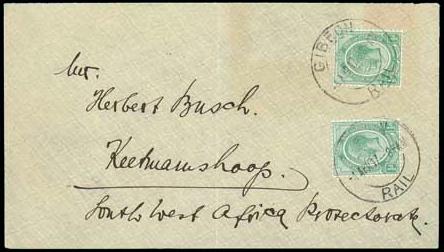 GIBEON
RAIL
Mr.
Herbert Busch.
Keetmanshoop.
South West Africa Protectorate
RAIL